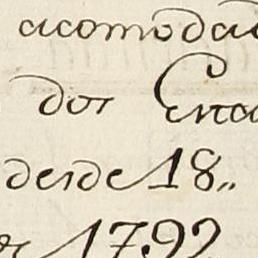 acomoda
dos Erca
desde 18,,
1792